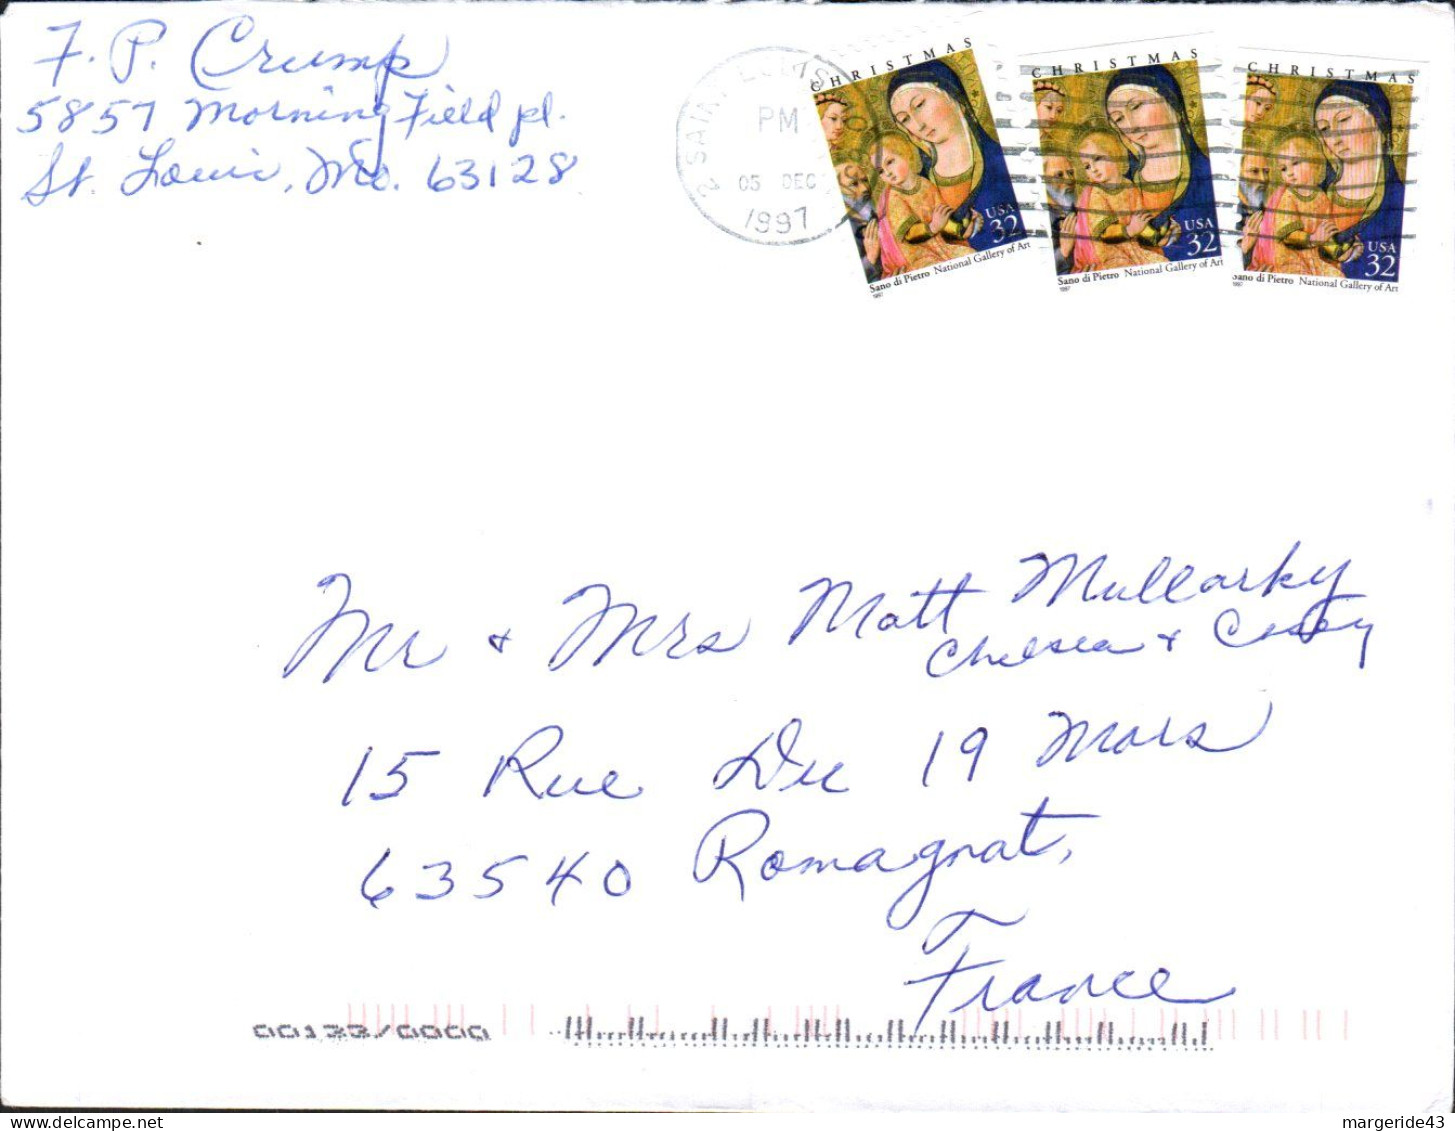 F. P. Crump
5857 Morning Field pl.
St. Louis, Mo. 63128
2 SAINT LOUIS MO
PM
05 DEC
1997
CHRISTMAS
USA
32
Sano di Pietro National Gallery of Art
1997
CHRISTMAS
USA
32
Sano di Pietro National Gallery of Art
1997
CHRISTMAS
USA
32
Sano di Pietro National Gallery of Art
1997
Mr + Mrs Matt Mullarky
Chelsea + Casey
15 Rue Du 19 Mars
63540 Romagnat,
France
00123/0000
margeride43